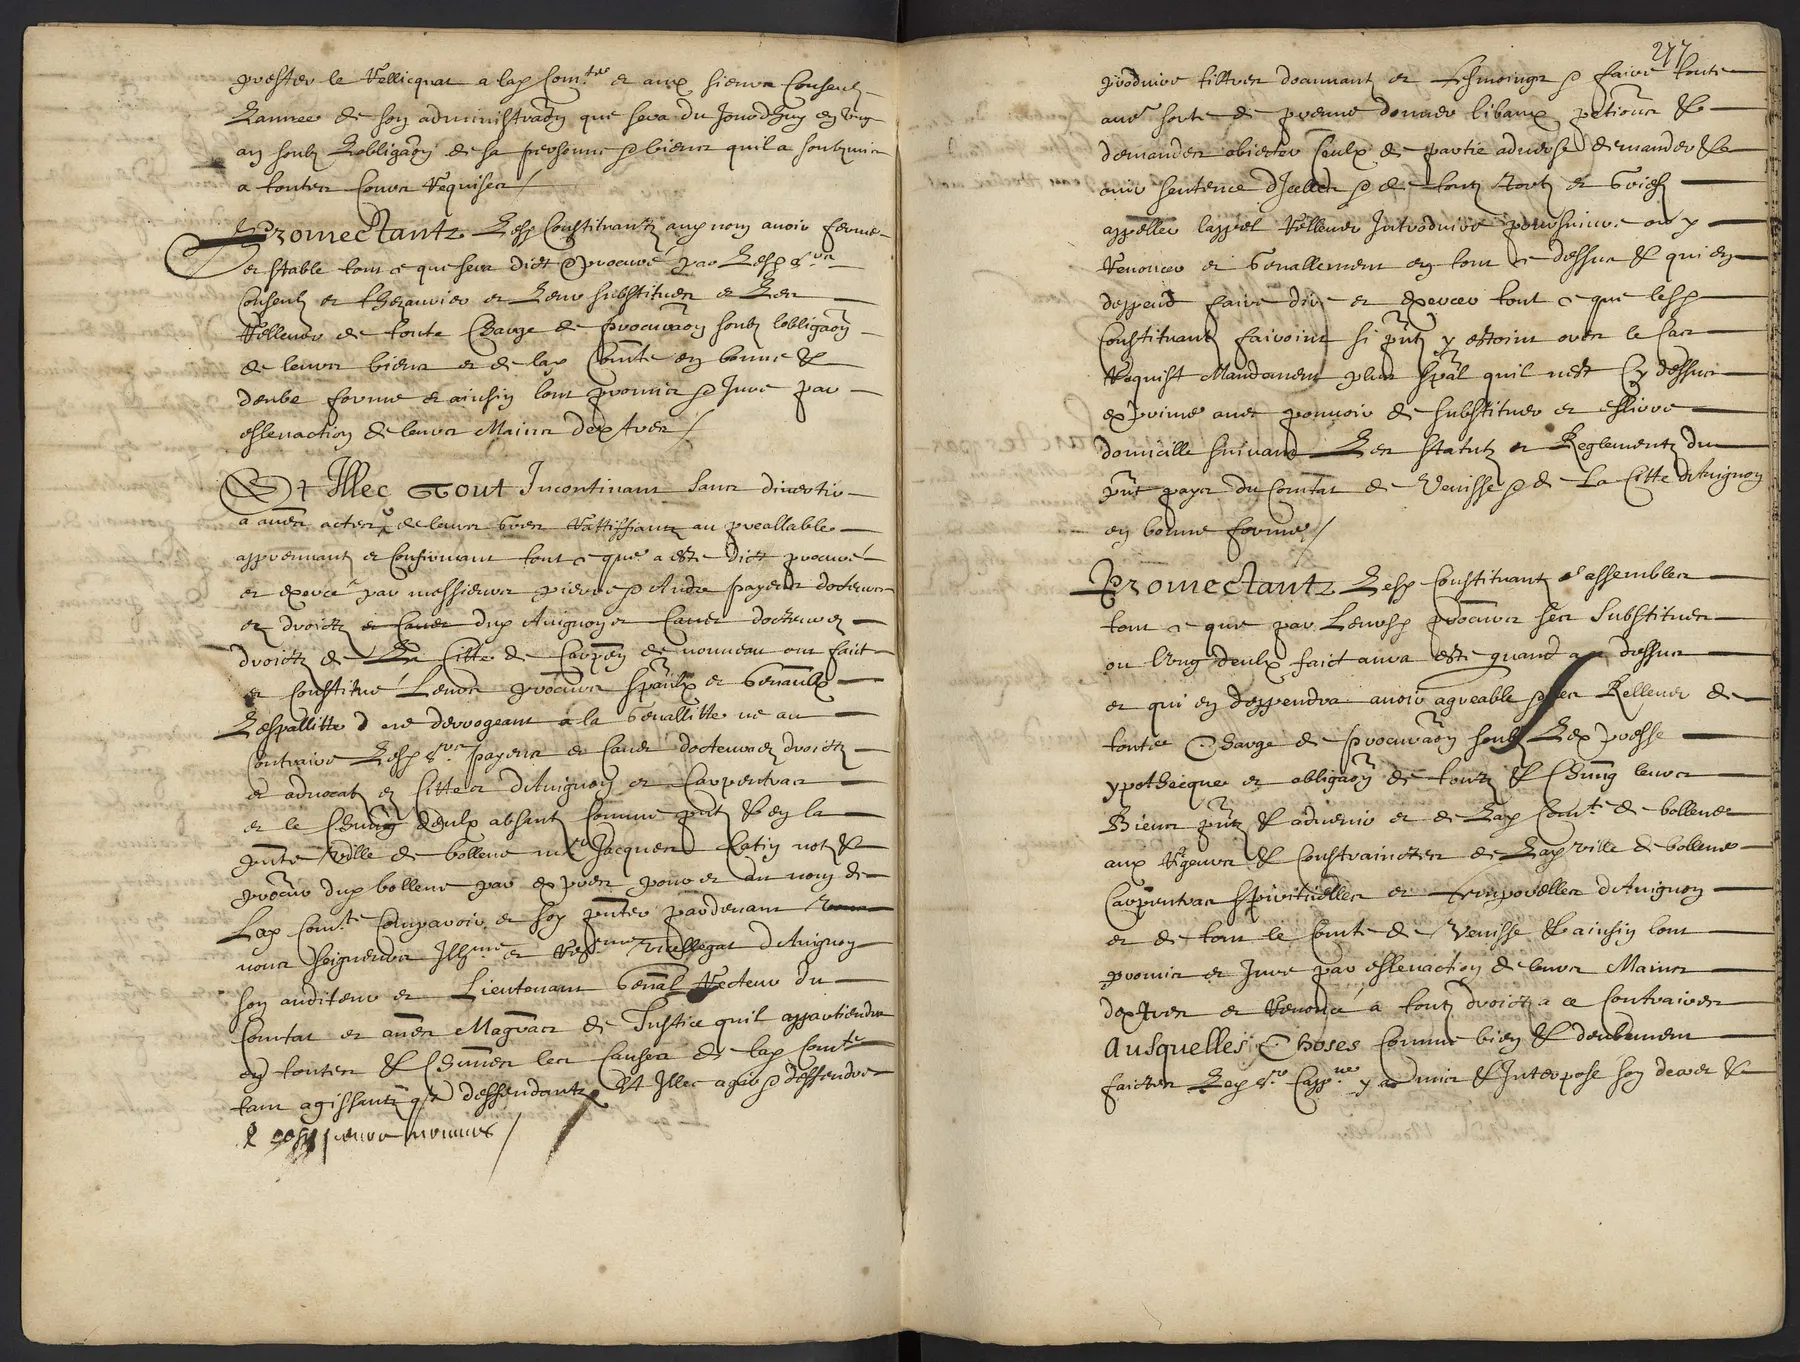 prester le Rellicquat a lad Com.te et aux sieurs Consculz
Lannee de son administraõn que sera du Jourdhuy en Ung
an soubz Lobligaõn de sa personne & biens quil a soubzmis
a toutes Cours Requises /
Promectantz Lesd Constituantz aux nom avoir ferme
et stable tout ce que sera dict & procuré par Lesd srs
Consculz et thezaurier et Leur substitues et Les
Rellever de toute Charge de procuraõn soubz lobligaõn
de leurs biens et de lad Comte en bonne &
deube forme et ainsin lont promis & Jure par
eslevaction de leurs Mains dextres /
Et Illec Tout Incontinant sans divertir
a aultres actes de leurs gres Rattiffiantz au preallable
apprenant et Confirmant tout ce que a este dict procuré
et exercé par messieurs pierre & Andre payens docteurs
ez droictz et Caves dud Avignon et Caves docteur ez
droictz de La Citte de Carpen de nouveau ont faict
et Constitué Leurs procurs spãulx et genãulx
Lespallitte ne derrogeant a la genallitte ne au
Contraire Lesd srs payens et Caves docteurs ez droictz
et advocatz ez Cittes dAvignon et Carpentras
et le Chũng deulx absantz Comme pñtz & en la
pñte Ville de bollene me Jacques Catin not &
procur dud bollene par expres pour et au nom de
Lad Com.te Comparoir et soy pñter pardevant
nous seigneurs Ill.me et Re.me Vicellegat dAvignon
son auditeur et Lieutenant genãl Recteur du
Comtat et aũes Magrãs de Justice quil appartiendra
en toutes & Chũnes les Causes de lad Com.te
tant agissantz que deffendantz Et Illec agir & deffendre
277
produire tiltres documant et tesmoings & faire toute
aũe sorte de preuve donner libaux petitions &
demandes obiecter Ceulx de partie adverse demander &
ouir sentence dIcelles & de toutz tortz et griefz
appeller lappel Rellever Introduire poursuivre ou y
Renoncer et genallement en tout ce dessus & qui en
deppend faire dire et exercer tout ce que lesd
Constituantz fairoint si pñtz y estoint ores le Cas
Requist Mandement plus spãl quil nest Cy dessus
exprime avec pouvoir de substituer et eslirre
domicille suivant Les Statutz et Reglementz du
pñt pays du Comtat de Venisse & de La Citte dAvignon
en bonne forme /
Promectantz Lesd Constituantz & assembles
tout ce que par Leursd procurs ses Substitues
ou Ung deulx faict aura este quand a ce dessus
et qui en deppendra avoir agreable & les Rellever de
toute Charge de procuraõn soubz Lexpresse
ypothecque et obligaõn de toutz & Chũng leurs
Biens pñtz & advenir et de Lad Com.te de bollene
aux Rigeurs & Constrainctes de Lad Ville de bollene
Carpentras spirituelles et temporelles dAvignon
et de tout le Comte de Venisse & ainsin lont
promis et Jure par eslevaction de leurs Mains
dextres et Renoncé a toutz droictz a ce Contraires
Ausquelles Choses Comme bien & deubement
faictes Led sr Capp.ne y a mis & Interpose son decret &